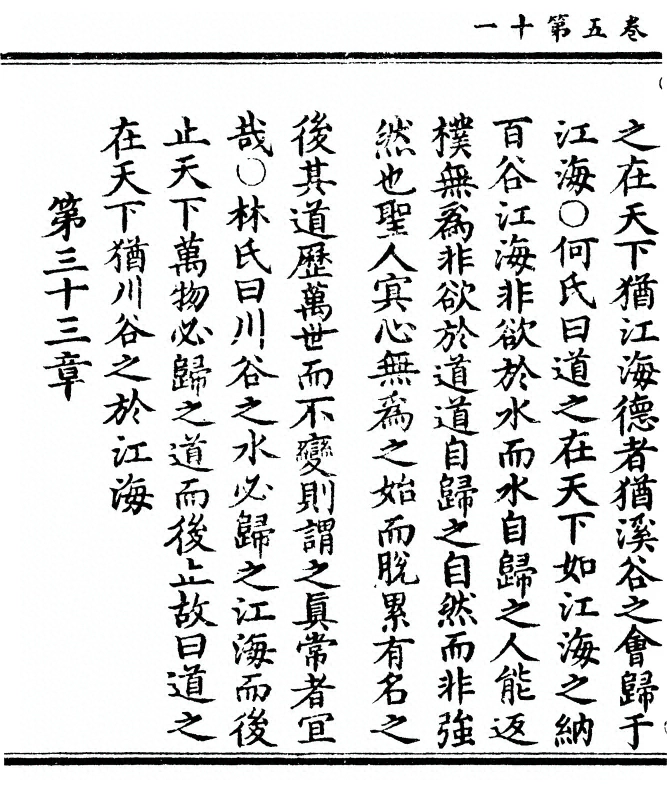 卷五第十一
之在天下猶江海德者猶溪谷之會歸于
江海〇何氏曰道之在天下如江海之納
百谷江海非欲於水而水自歸之人能返
樸無爲非欲於道道自歸之自然而非強
然也聖人寘心無爲之始而脫累有名之
後其道歷萬世而不變則謂之眞常者宜
哉〇林氏曰川谷之水必歸之江海而後
止天下萬物必歸之道而後止故曰道之
在天下猶川谷之於江海
第三十三章